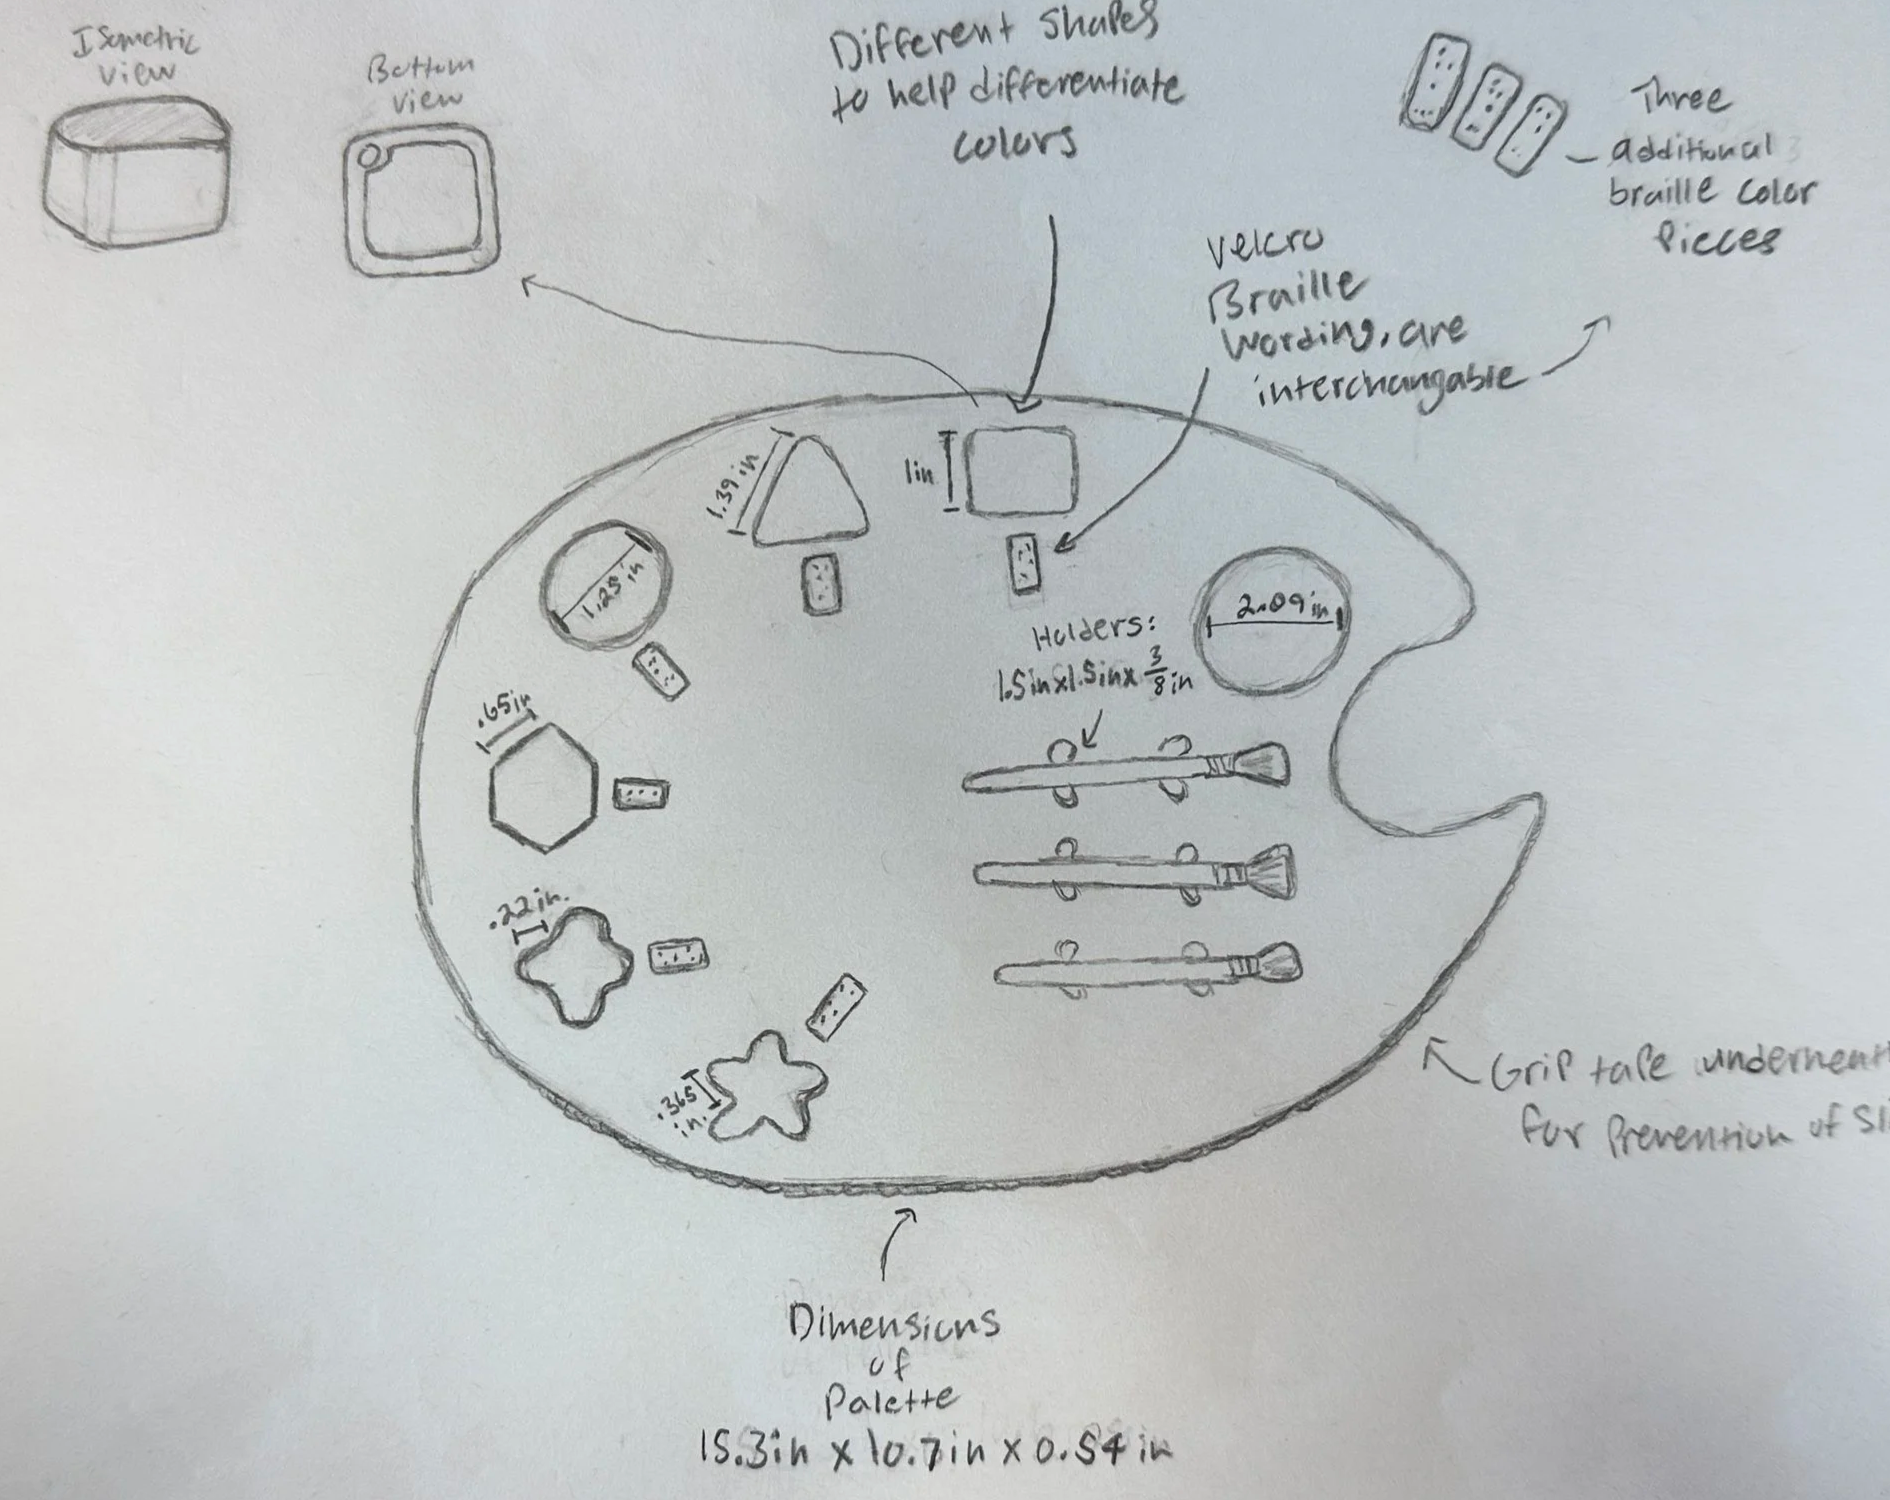 Isometric
view
Bottom
view
Different shapes
to help differentiate
colors
Three
additional
braille color
Pieces
Velcro
Braille
wording, are
interchangable
1.39 in
1in
1.25 in
2.09 in
Holders:
1.5in x 1.5in x 3/8 in
.65in
.22in.
.365
in.
Grip tape underneat
for Prevention of sli
Dimensions
of
Palette
15.3in x 10.7in x 0.54 in